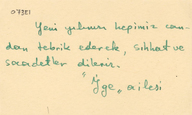 07321
Yeni yılınızı hepimiz can-
dan tebrik ederek, sıhhat ve
saadetler dileriz.
"İge" ailesi